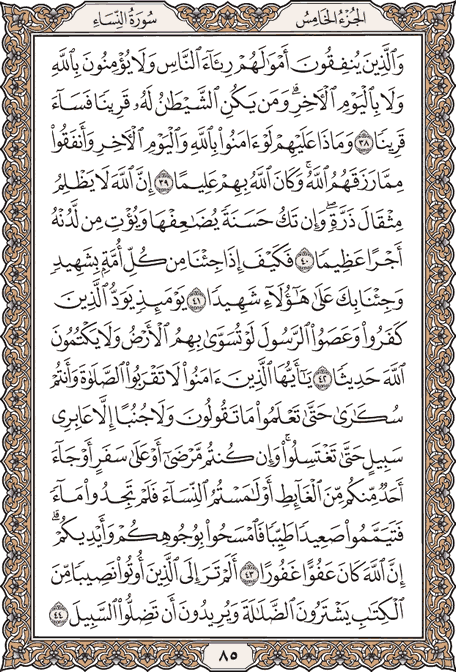 الجُزْءُ الخَامِسُ سُورَةُ النِّسَاءِ
وَٱلَّذِينَ يُنفِقُونَ أَمْوَٰلَهُمْ رِئَآءَ ٱلنَّاسِ وَلَا يُؤْمِنُونَ بِٱللَّهِ
وَلَا بِٱلْيَوْمِ ٱلْـَٔاخِرِۗ وَمَن يَكُنِ ٱلشَّيْطَٰنُ لَهُۥ قَرِينًا فَسَآءَ
قَرِينًا ٣٨ وَمَاذَا عَلَيْهِمْ لَوْ ءَامَنُوا۟ بِٱللَّهِ وَٱلْيَوْمِ ٱلْـَٔاخِرِ وَأَنفَقُوا۟
مِمَّا رَزَقَهُمُ ٱللَّهُۚ وَكَانَ ٱللَّهُ بِهِمْ عَلِيمًا ٣٩ إِنَّ ٱللَّهَ لَا يَظْلِمُ
مِثْقَالَ ذَرَّةٍۖ وَإِن تَكُ حَسَنَةً يُضَٰعِفْهَا وَيُؤْتِ مِن لَّدُنْهُ
أَجْرًا عَظِيمًا ٤٠ فَكَيْفَ إِذَا جِئْنَا مِن كُلِّ أُمَّةٍۭ بِشَهِيدٍ
وَجِئْنَا بِكَ عَلَىٰ هَٰٓؤُلَآءِ شَهِيدًا ٤١ يَوْمَئِذٍ يَوَدُّ ٱلَّذِينَ
كَفَرُوا۟ وَعَصَوُا۟ ٱلرَّسُولَ لَوْ تُسَوَّىٰ بِهِمُ ٱلْأَرْضُ وَلَا يَكْتُمُونَ
ٱللَّهَ حَدِيثًا ٤٢ يَٰٓأَيُّهَا ٱلَّذِينَ ءَامَنُوا۟ لَا تَقْرَبُوا۟ ٱلصَّلَوٰةَ وَأَنتُمْ
سُكَٰرَىٰ حَتَّىٰ تَعْلَمُوا۟ مَا تَقُولُونَ وَلَا جُنُبًا إِلَّا عَابِرِى
سَبِيلٍ حَتَّىٰ تَغْتَسِلُوا۟ۚ وَإِن كُنتُم مَّرْضَىٰٓ أَوْ عَلَىٰ سَفَرٍ أَوْ جَآءَ
أَحَدٌ مِّنكُم مِّنَ ٱلْغَآئِطِ أَوْ لَٰمَسْتُمُ ٱلنِّسَآءَ فَلَمْ تَجِدُوا۟ مَآءً
فَتَيَمَّمُوا۟ صَعِيدًا طَيِّبًا فَٱمْسَحُوا۟ بِوُجُوهِكُمْ وَأَيْدِيكُمْۗ
إِنَّ ٱللَّهَ كَانَ عَفُوًّا غَفُورًا ٤٣ أَلَمْ تَرَ إِلَى ٱلَّذِينَ أُوتُوا۟ نَصِيبًا مِّنَ
ٱلْكِتَٰبِ يَشْتَرُونَ ٱلضَّلَٰلَةَ وَيُرِيدُونَ أَن تَضِلُّوا۟ ٱلسَّبِيلَ ٤٤
٨٥